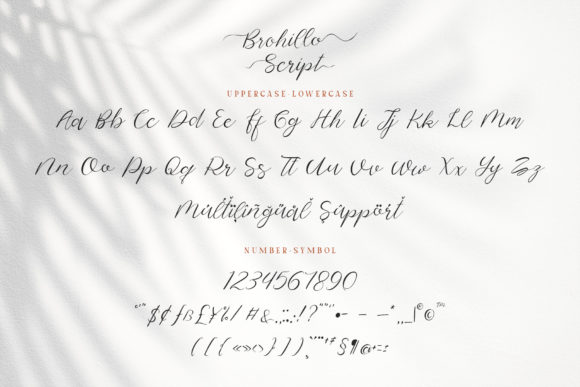 Brohillo
Script
UPPERCASE-LOWERCASE
Aa Bb Cc Dd Ee Ff Gg Hh Ii Jj Kk Ll Mm
Nn Oo Pp Qq Rr Ss Tt Uu Vv Ww Xx Yy Zz
Multilingual Support
NUMBER-SYMBOL
1234567890
$¢ƒß£¥%/#&.,:;!?
({[«»‹›]})
§¶@